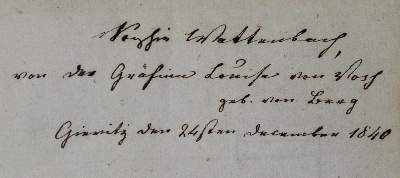 Sophie Wattenbach,
von der Gräfinn Louise von Voß
geb. von Berg
Gievitz den 24sten December 1840